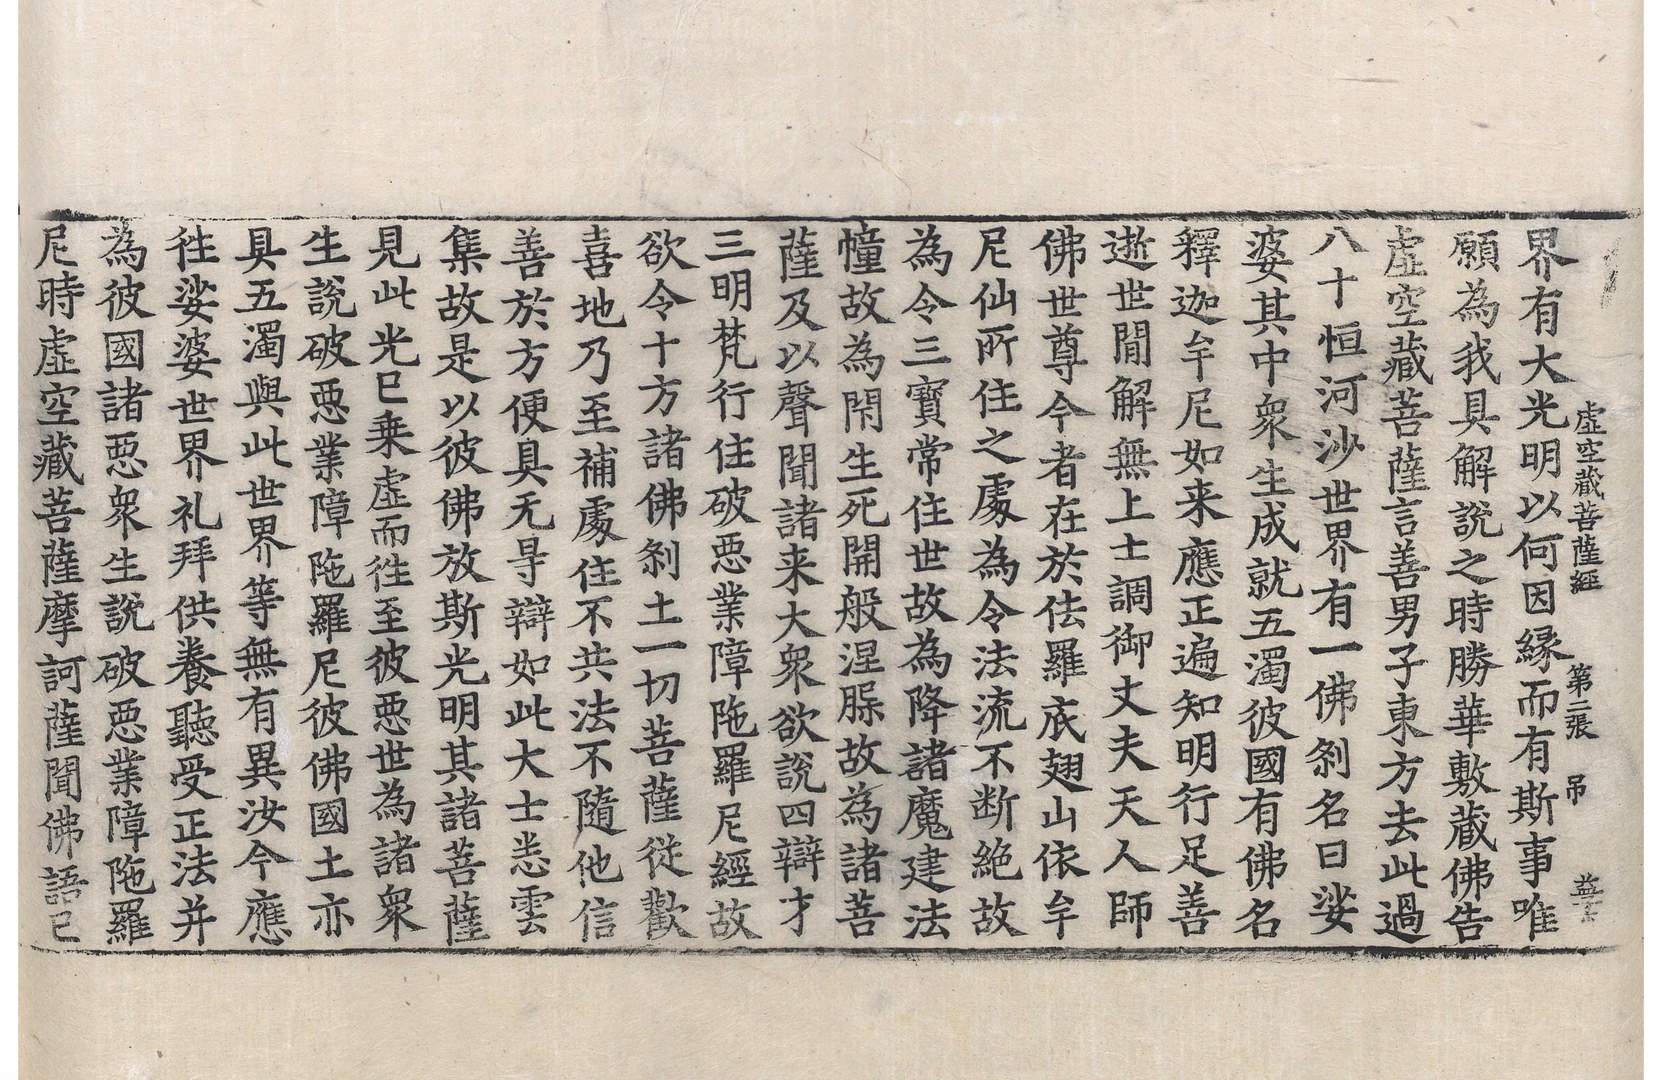 虛空藏菩薩經 第二張 吊
界有大光明以何因緣而有斯事唯
願為我具解說之時勝華敷藏佛告
虛空藏菩薩言善男子東方去此過
八十恒河沙世界有一佛剎名曰娑
婆其中衆生成就五濁彼國有佛名
釋迦牟尼如来應正遍知明行足善
逝世閒解無上士調御丈夫天人師
佛世尊今者在於佉羅底翅山依牟
尼仙所住之處為令法流不断絶故
為令三寶常住世故為降諸魔建法
幢故為閇生死開般涅槃故為諸菩
薩及以聲聞諸来大衆欲說四辯才
三明梵行住破惡業障陁羅尼經故
欲令十方諸佛剎土一切菩薩從歡
喜地乃至補處住不共法不隨他信
善於方便具无㝵辯如此大士悉雲
集故是以彼佛放斯光明其諸菩薩
見此光已乗虛而徃至彼惡世為諸衆
生說破惡業障陁羅尼彼佛國土亦
具五濁與此世界等無有異汝今應
徃娑婆世界礼拜供養聽受正法并
為彼國諸惡衆生說破惡業障陁羅
尼時虛空藏菩薩摩訶薩聞佛語已